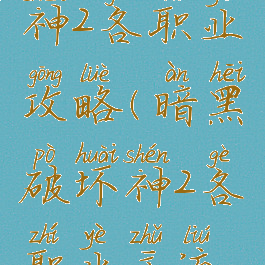 神2各职业
gōng lüè àn hēi
攻略(暗黑
pò huài shén gè
破坏神2各
zhí yè zhǔ liú